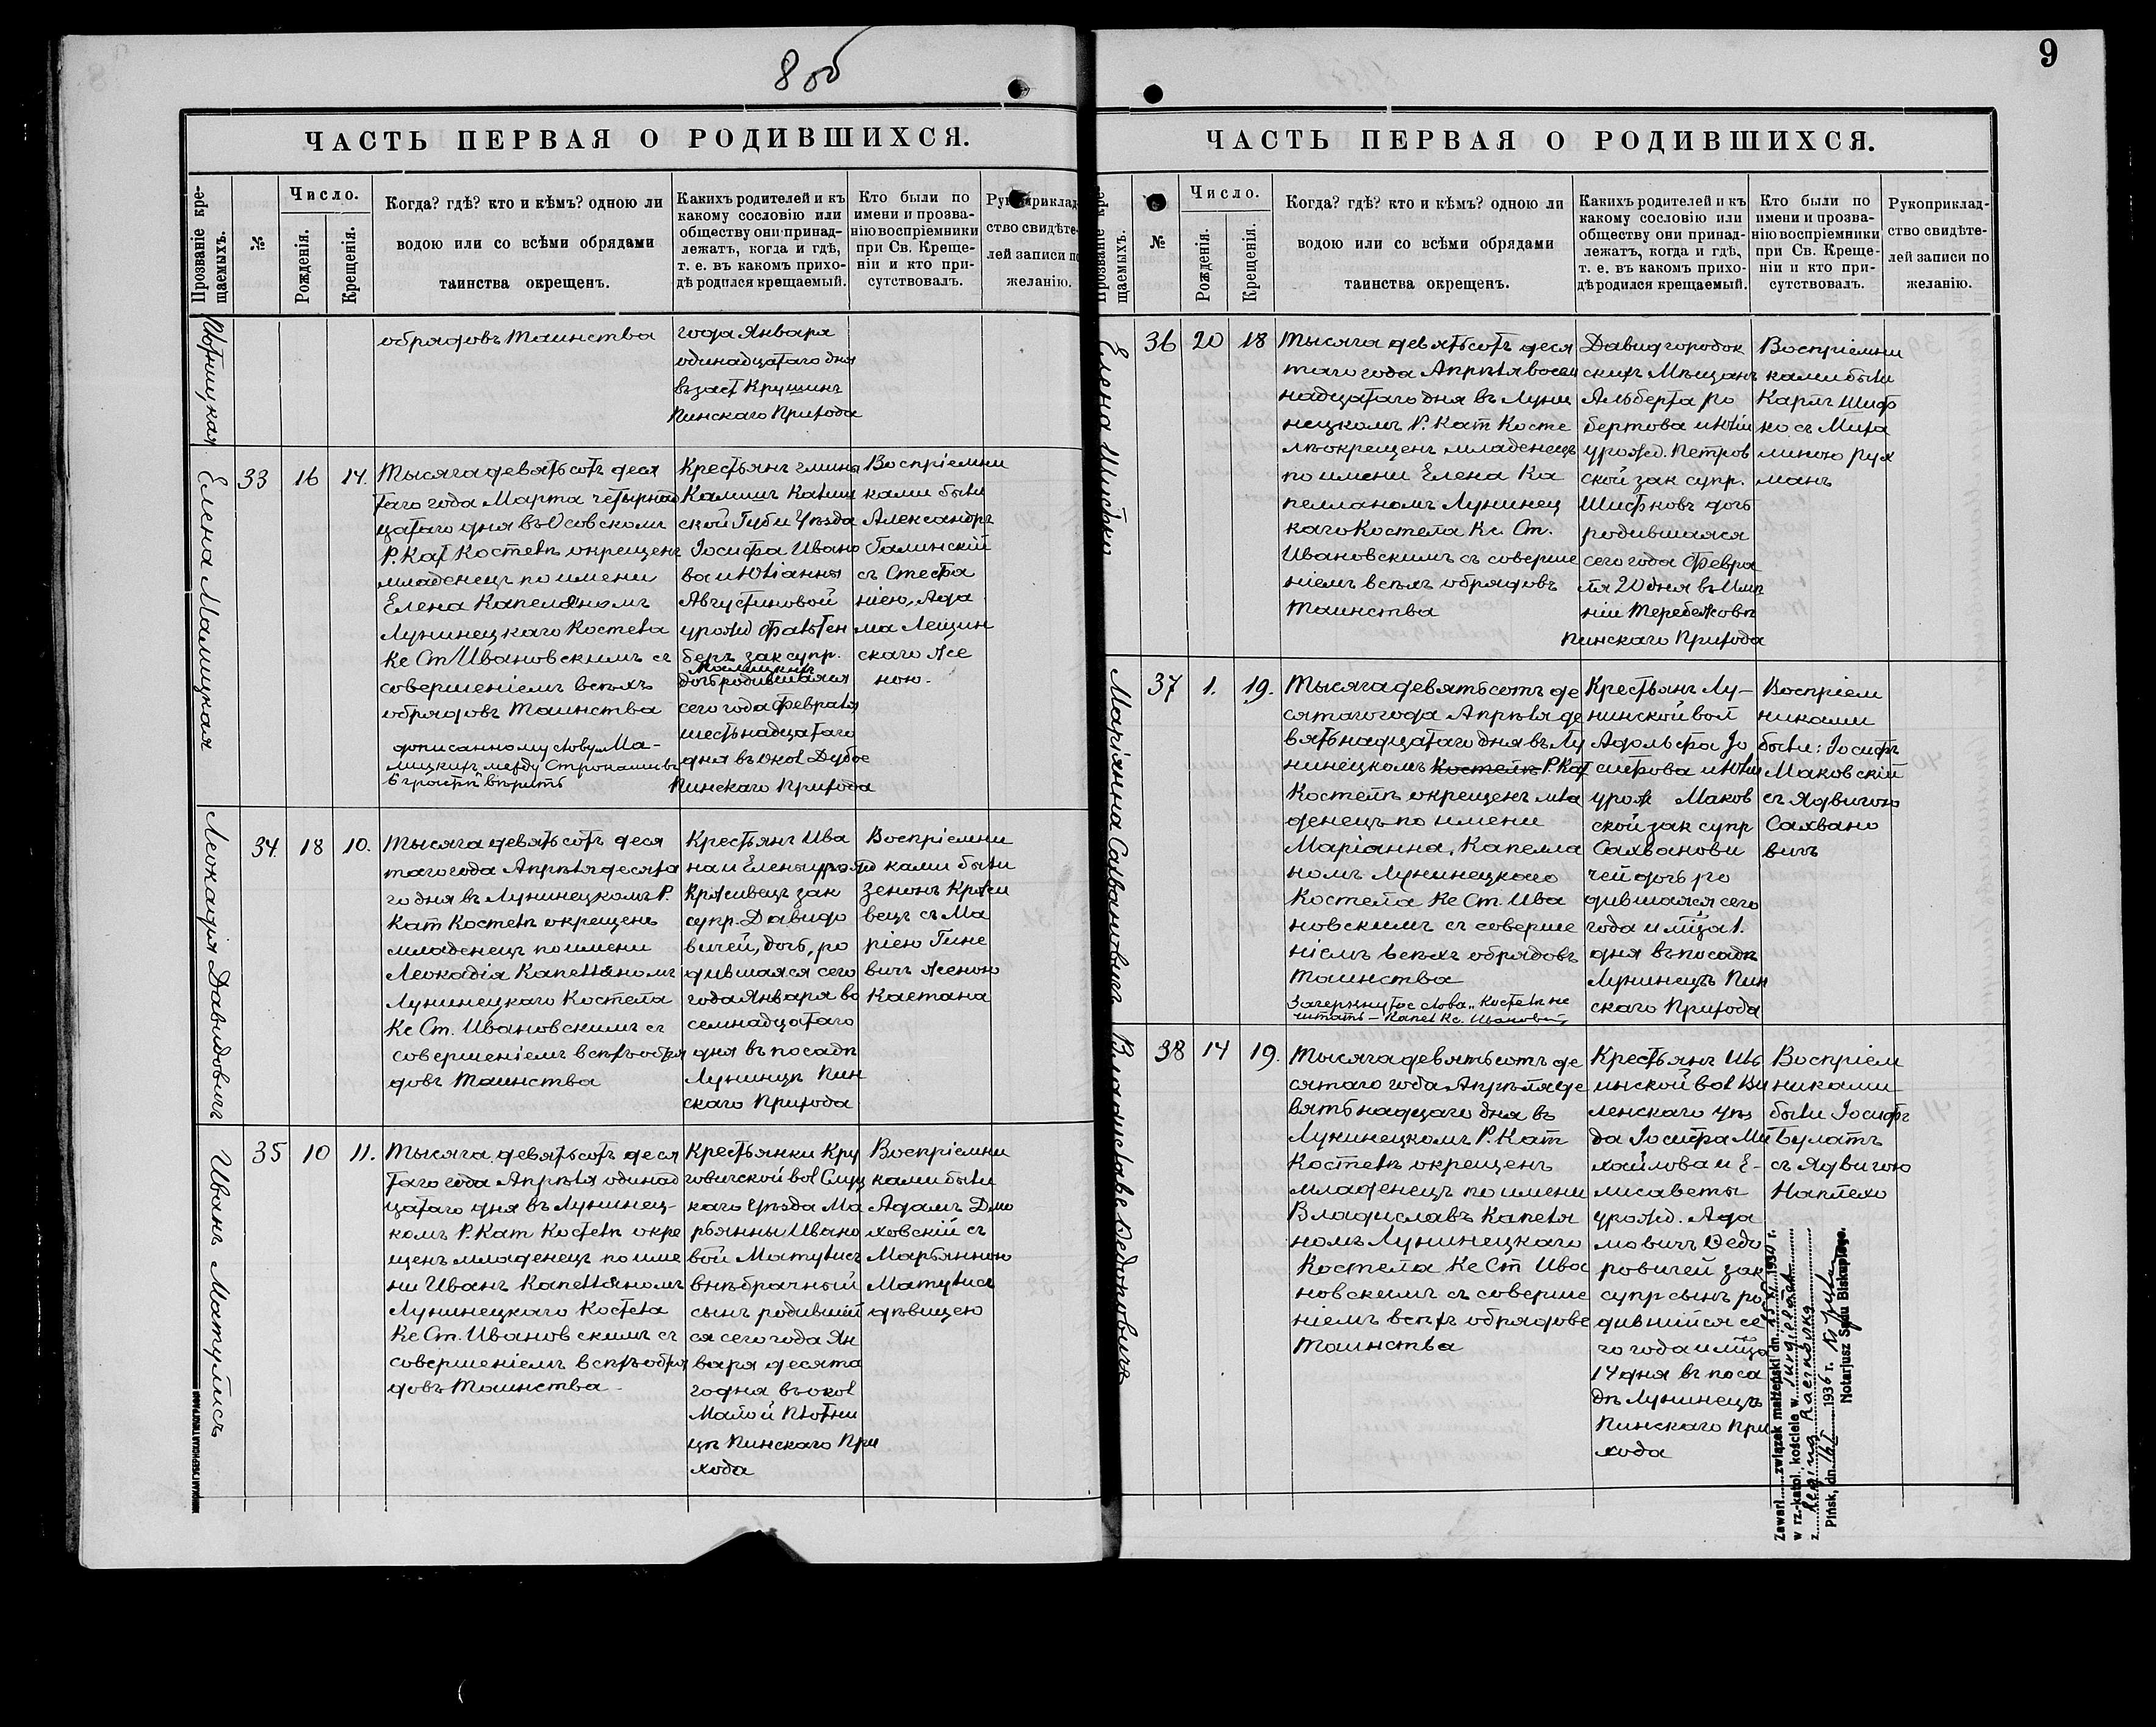 8 об
ЧАСТЬ ПЕРВАЯ О РОДИВШИХСЯ.
Прозваніе кре-
щаемыхъ.
№
Число.
Рожденія.
Крещенія.
Когда? гдѣ? кто и кѣмъ? одною ли
водою или со всѣми обрядами
таинства окрещенъ.
Какихъ родителей и къ
какому сословію или
обществу они принад-
лежатъ, когда и гдѣ,
т. е. въ какомъ прихо-
дѣ родился крещаемый.
Кто были по
имени и прозва-
нію воспріемники
при Св. Креще-
ніи и кто при-
сутствовалъ.
Рукоприклад
ство свидѣте-
лей записи по
желанію.
обрядовъ Таинства
года Января
одинадцатаго дня
въ заст Крушинъ
Пинскаго Прихода
Елена Малицкая
33
16
14.
Тысяча девятьсотъ деся
таго года Марта четырнад
цатаго дня въ Осовскомъ
Р. Кат Костелѣ окрещенъ
младенецъ по имени
Елена Капеляномъ
Лунинецкаго Костела
Кс Ст Ивановскимъ съ
совершеніемъ всѣхъ
обрядовъ Таинства
дописанному слову „Ма-
лицкихъ между строками въ
6 графѣ" вѣрить
Крестьянъ гмины
Камишъ Калиш
ской Губи Уѣзда
Іосифа Ивано
ва и Юліанны
Августиновой
урожд Фальтен
беръ зак супр.
Малицкихъ
дочь родившаяся
сего года Февраля
шестьнадцатаго
дня въ окол Дубое
Пинскаго Прихода
Воспріемни
ками были
Александръ
Галинскій
съ Стефа
ніею, Ада
ма Лещин
скаго Же
ною.
Леокадія Давидовичъ
34.
18
10.
Тысяча девятьсотъ деся
таго года Апрѣля десята
го дня въ Лунинецкомъ Р.
Кат Костелѣ окрещенъ
младенецъ по имени
Леокадія Капелляномъ
Лунинецкаго Костела
Кс Ст. Ивановскимъ съ
совершеніемъ всѣхъ обря
довъ Таинства
Крестьянъ Ива
на и Елены урожд
Крживецъ зак
супр. Давидо
вичей, дочь, ро
дившаяся сего
года Января во
семнадцатаго
дня въ посадѣ
Лунинцѣ Пин
скаго Прихода
Воспріемни
ками были
Зенонъ Кржи
вецъ съ Ма
ріею Гине
вичъ Женою
Каетана
Иванъ Матулисъ
35
10
11.
Тысяча девятьсотъ деся
таго года Апрѣля одинад
цатаго дня въ Лунинец-
комъ Р. Кат Костелѣ окре
щенъ младенецъ по име
ни Иванъ Капелляномъ
Лунинецкаго Костела
Кс Ст. Ивановскимъ съ
совершеніемъ всѣхъ обря
довъ Таинства
Крестьянки Кру
говичской вол Слуц
каго Уѣзда Ма
рьянны Ивано
вой Матулисъ
внѣбрачный
сынъ родившій
ся сего года Ян
варя десята
го дня въ окол
Малой Плотни
цѣ Пинскаго При
хода
Воспріемни
ками были
Адамъ Дмо
ховскій съ
Марьянною
Матулисъ
дѣвицею
9
ЧАСТЬ ПЕРВАЯ О РОДИВШИХСЯ.
щаемыхъ.
№
Число.
Рожденія.
Крещенія.
Когда? гдѣ? кто и кѣмъ? одною ли
водою или со всѣми обрядами
таинства окрещенъ.
Какихъ родителей и къ
какому сословію или
обществу они принад-
лежатъ, когда и гдѣ,
т. е. въ какомъ прихо-
дѣ родился крещаемый.
Кто были по
имени и прозва-
нію воспріемники
при Св. Креще-
ніи и кто при-
сутствовалъ.
Рукоприклад-
ство свидѣте-
лей записи по
желанію.
Елена Шифко
36
20
18
Тысяча девятьсотъ деся
таго года Апрѣля восем
надцатаго дня въ Луни
нецкомъ Р. Кат Косте
лѣ окрещенъ младенецъ
по имени Елена Ка
пелланомъ Лунинец
каго Костела Кс. Ст.
Ивановскимъ съ соверше
ніемъ всѣхъ обрядовъ
Таинства
Давидгородок
скихъ Мѣщанъ
Альберта Ро
бертова и Юліи
урожд. Петров
ской зак супр.
Шифковъ дочь
родившаяся
сего года Февра
ля 20 дня въ Имѣ
ніи Теребежовѣ
Пинскаго Прихода
Воспріемни
ками были
Карлъ Шиф
ко съ Миха
линою Рух
манъ
Маріанна Сахвановичъ
37
1.
19.
Тысяча девятьсотъ де
сятаго года Апрѣля де
вятьнадцатаго дня въ Лу
нинецкомъ Костелѣ Р. Кат
Костелѣ окрещенъ мла
денецъ по имени
Маріанна, Капелла
номъ Лунинецкаго
Костела Кс Ст. Ива
новскимъ съ соверше
ніемъ всѣхъ обрядовъ
Таинства
Зачеркнутое слово „Костелѣ не
читать – Капел Кс. Ивановскій
Крестьянъ Лу-
нинской вол
Адольфа Іо
сифова и Юліи
урож Маков
ской зак супр
Сахванови
чей дочь ро
дившаяся сего
года и мѣца 1.
дня въ посадѣ
Лунинецъ Пин
скаго Прихода
Воспріем
никами
были: Іосифъ
Маковскій
съ Ядвигою
Сахвано
вичъ
Владиславъ Федоровичъ
38
14
19.
Тысяча девятьсотъ де
сятаго года Апрѣля де
вятьнадцаго дня въ
Лунинецкомъ Р. Кат
Костелѣ окрещенъ
младенецъ по имени
Владиславъ Капеля
номъ Лунинецкаго
Костела Кс Ст Ива
новскимъ съ соверше
ніемъ всѣхъ обрядове
Таинства
Крестьянъ Ив
инской вол Ви
ленскаго уѣз
да Іосифа Ми
хайлова и Е-
лисаветы
урожд. Ада
мовичъ Федо
ровичей зак
супр сынъ ро
дившійся се
го года и мѣца
14 дня въ поса
дѣ Лунинецъ
Пинскаго При
хода
Воспріем
никами
были Іосифъ
Булатъ
съ Ядвигою
Наплехо
Zawarł związek małżeński dn. 1934 r.
w rz.-katol. kościele w
z
Pińsk, dn. 1936 r.
Notarjusz Sądu Biskupiego.